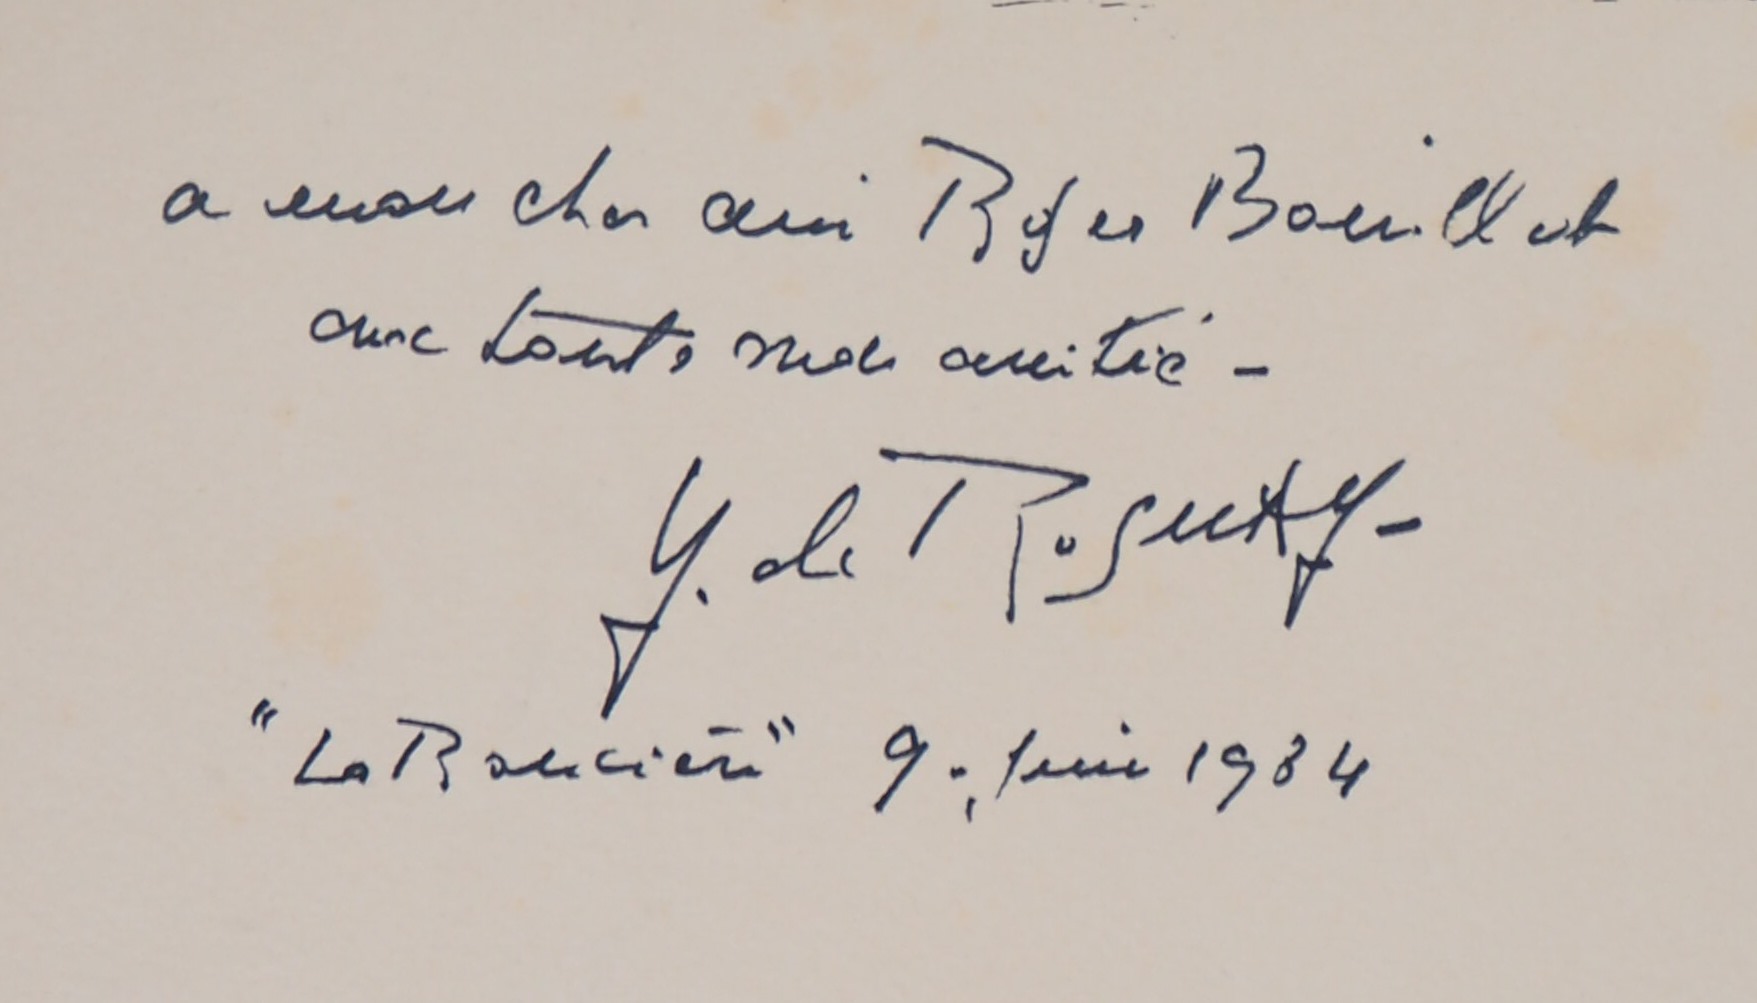 a mon cher ami Roger Bouillot
avec toute mon amitié -
Y. de Rosnay -
" 9. Juin 1984